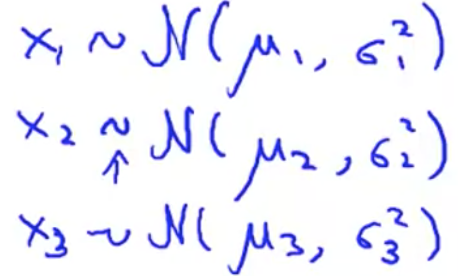 x₁ ~ N(μ₁, σ₁²)
x₂ ~ N(μ₂, σ₂²)
↑
x₃ ~ N(μ₃, σ₃²)